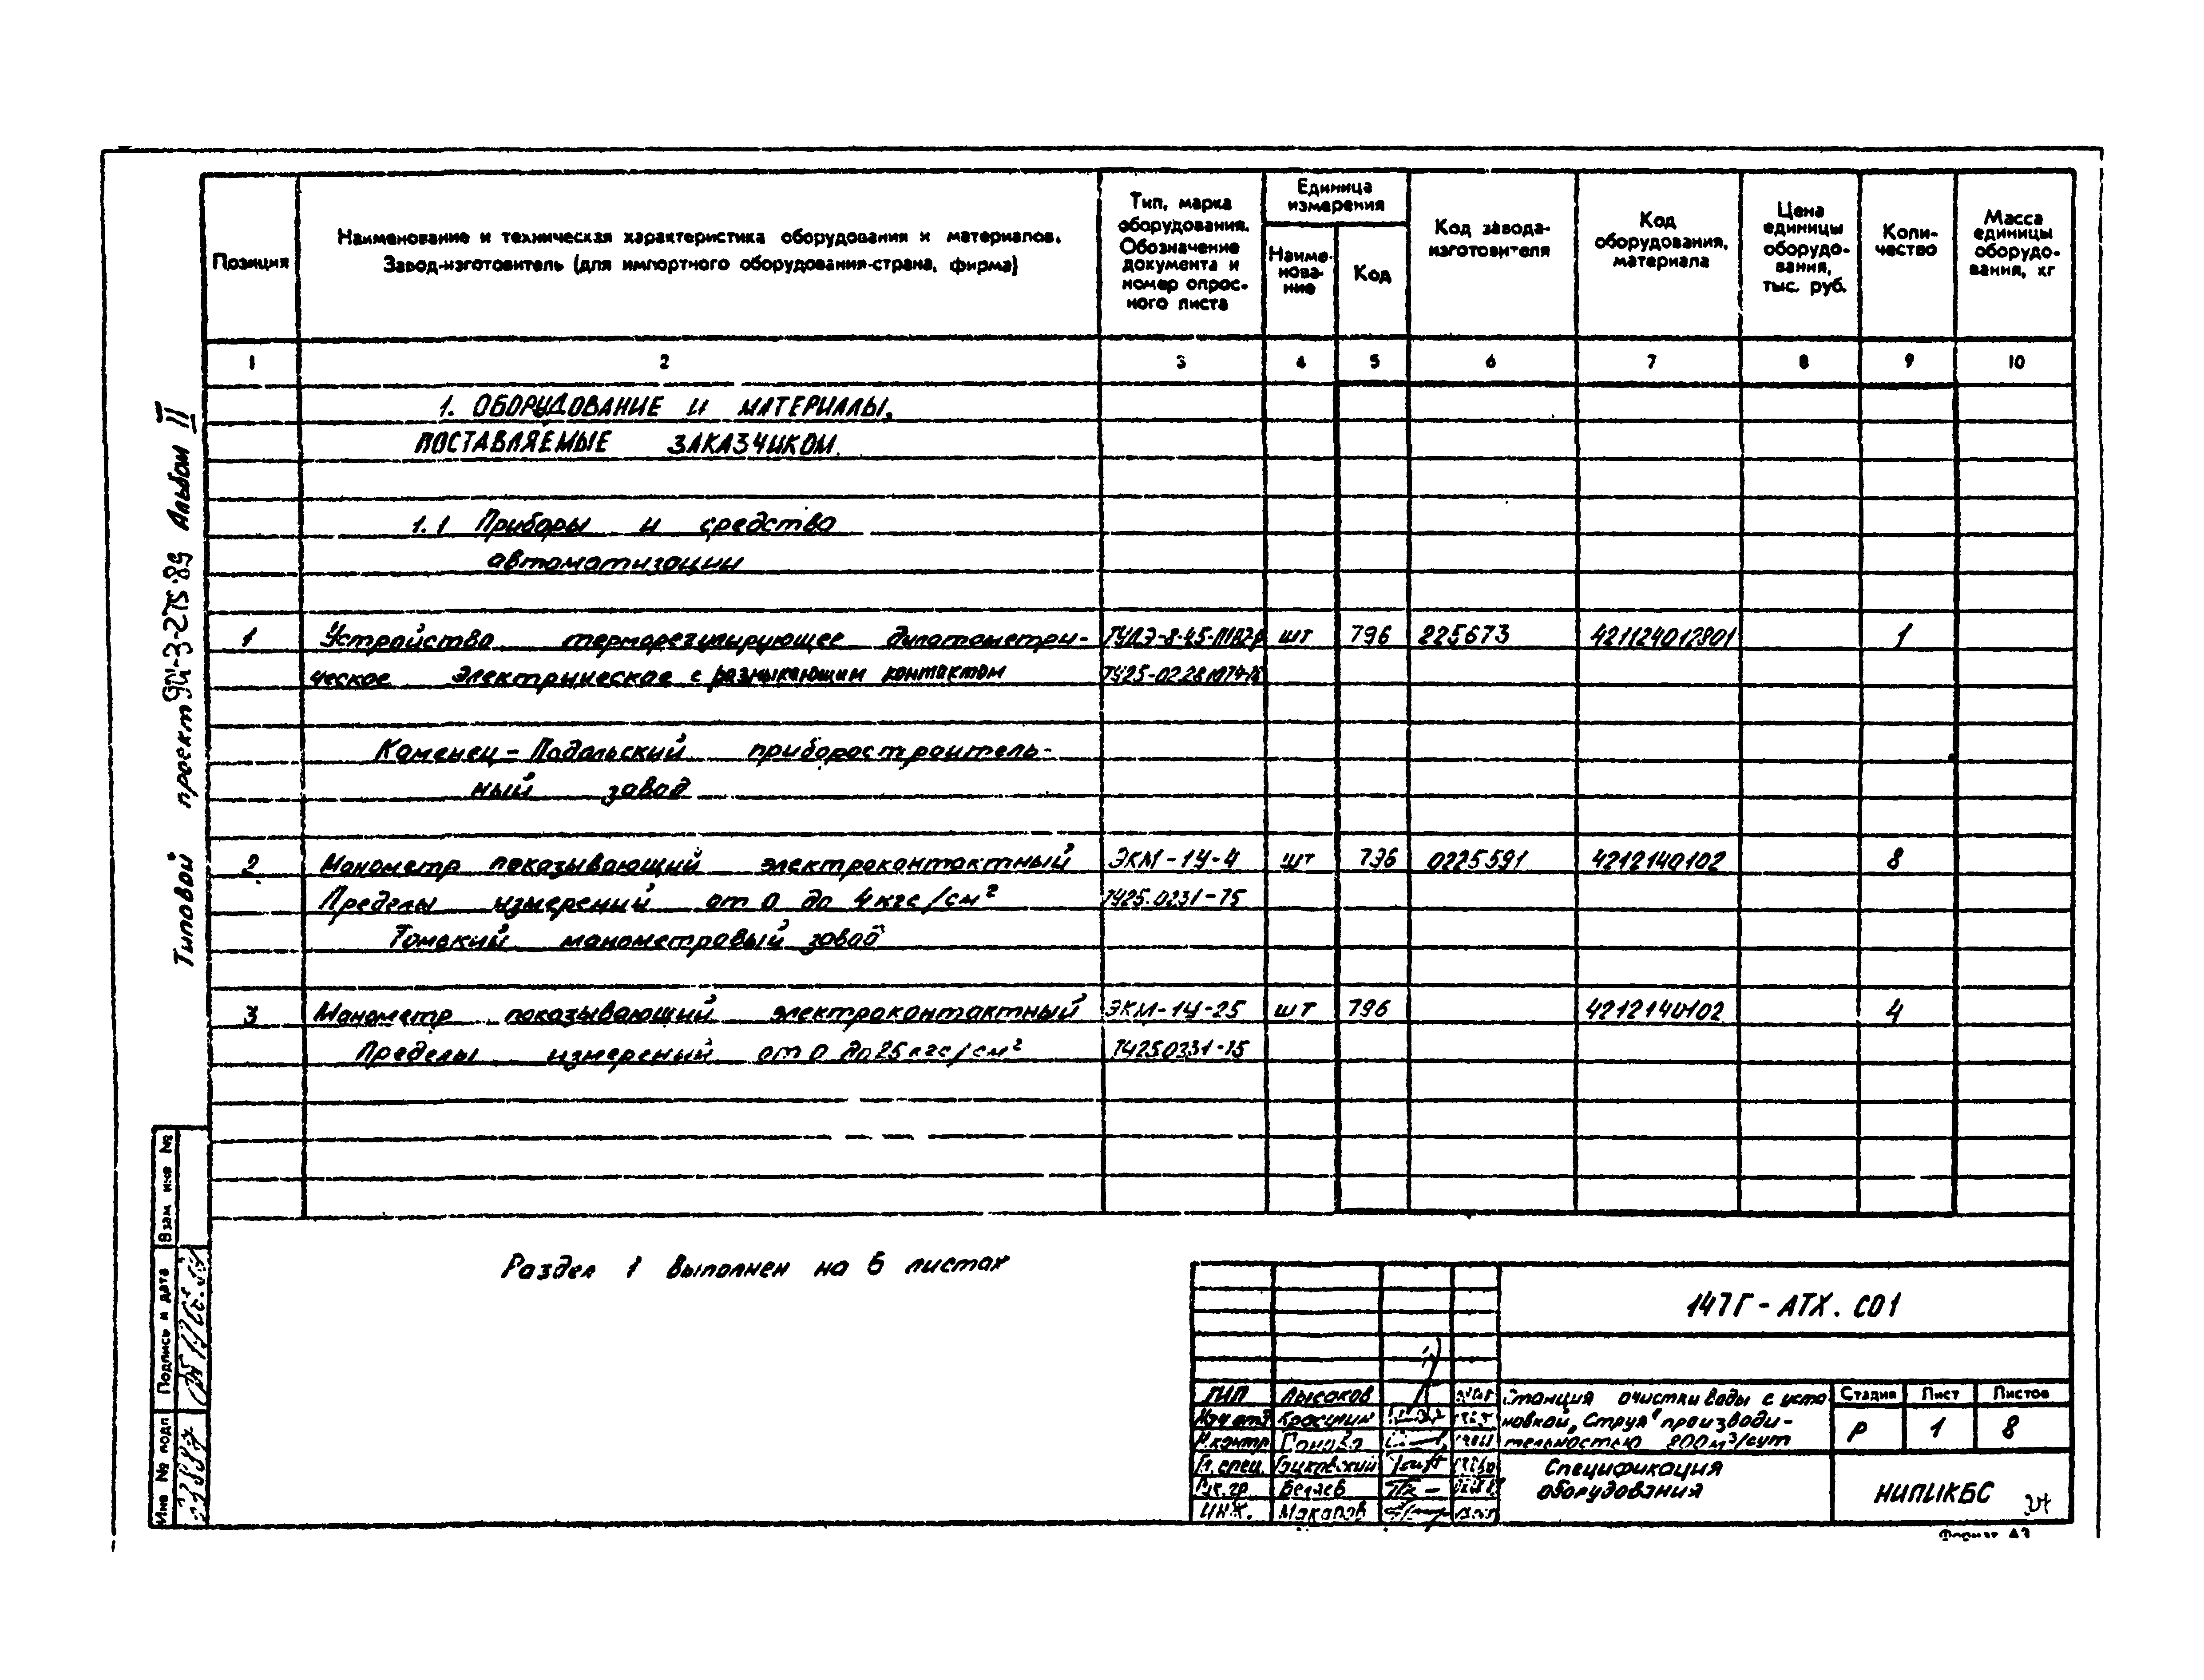 Типовой проект 901-3-275.89 Альбом II
Позиция
Наименование и техническая характеристика оборудования и материалов.
Завод-изготовитель (для импортного оборудования-страна, фирма)
Тип, марка
оборудования.
Обозначение
документа и
номер опрос-
ного листа
Единица
измерения
Наиме-
нова-
ние
Код
Код завода-
изготовителя
Код
оборудования,
материала
Цена
единицы
оборудо-
вания,
тыс. руб.
Коли-
чество
Масса
единицы
оборудо-
вания, кг
1 2 3 4 5 6 7 8 9 10
1. ОБОРУДОВАНИЕ И МАТЕРИАЛЫ,
ПОСТАВЛЯЕМЫЕ ЗАКАЗЧИКОМ.
1.1 Приборы и средства
автоматизации
1 Устройство терморегулирующее дилатометри- шт 796 225673 421124012801 1
ческое электрическое с размыкающим контактом
Каменец-Подольский приборостроитель-
ный завод
2 Манометр показывающий электроконтактный ЭКМ-1У-4 шт 796 0225591 4212140102 8
Пределы измерений от 0 до 4 кгс/см² ТУ25.0231-75
Томский манометровый завод
3 Манометр показывающий электроконтактный ЭКМ-1У-25 шт 796 4212140102 4
Пределы измерений от 0 до 25 кгс/см²
Раздел 1 выполнен на 6 листах
Взам инв №
Подпись и дата
Инв № подл
147Г-АТХ.СО1
ГИП Лысаков
Нач отд Красинин
Н.контр
Гл. спец.
Рук. гр. Беляев
ИНЖ. Макаров
Станция очистки воды с уста-
новкой „Струя" производи-
тельностью 800 м³/сут
Стадия Лист Листов
Р 1 8
Спецификация
оборудования
НИПИКБС
24
Формат А3